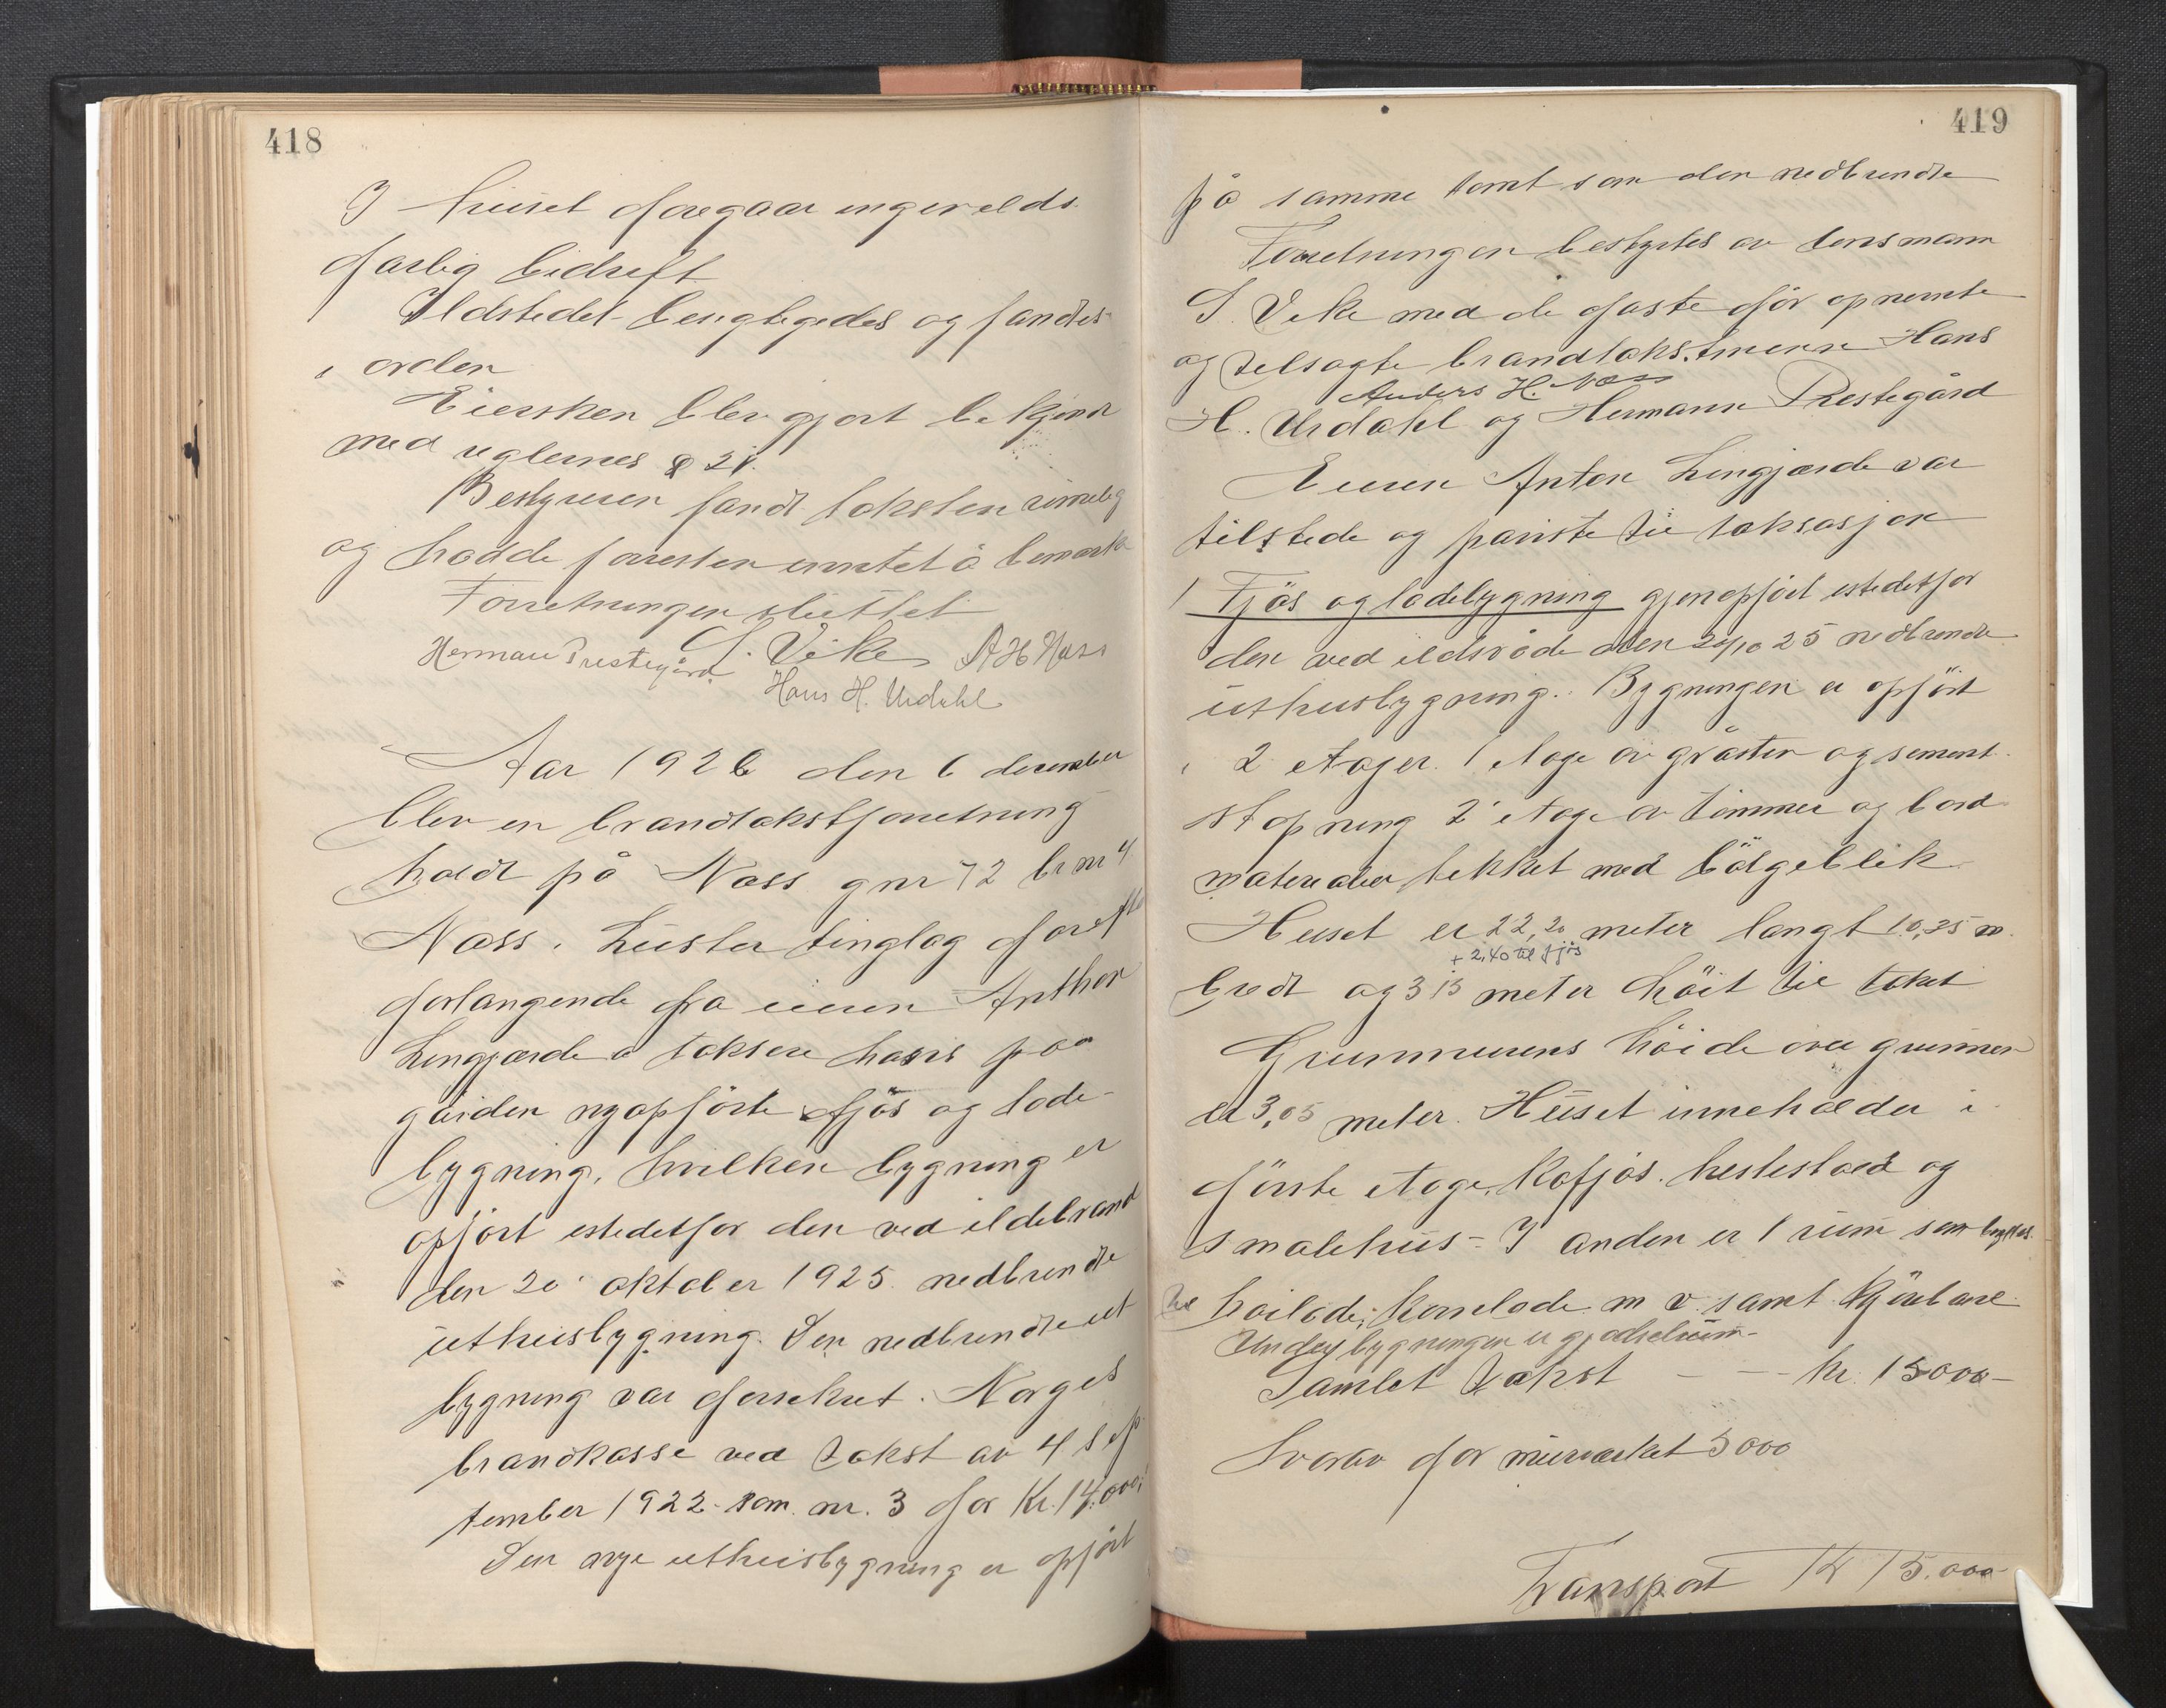 418
I huset foregaar ingen ilds
farlig bedrift
Ildstedet besigtigedes og fandtes
i orden
Eiersken blev gjort bekjendt
med reglernes § 21.
Bestyreren fandt taksten rimelig
og hadde forresten inntet å bemærke
Forretningen sluttet
S. Vike
Herman Prestegård A H Næss
Hans H. Urdahl
Aar 1926 den 6 desember
blev en brandtakstforretning
holdt på Næss gnr 72 brnr 4
Næss, Luster tinglag efter
forlangende fra eieren Anthon
Lingjærde å taksere hans paa
gården nyopförte fjös og lade-
bygning, hvilken bygning er
opfört istedetfor den ved ildebrand
den 20 oktober 1925 nedbrendte
uthusbygning. Den nedbrendte ut
bygning var forsikret i Norges
brandkasse ved takst av 4 sep
tember 1922 som nr. 3 for Kr. 14.000,
Den nye uthusbygning er opfört
419
på samme tomt som den nedbrendte
Forretningen bestyrtes av lensmann
S. Vike med de faste för opnemte
og tilsagte brandtakstmenn Hans
Anders H. Næss
H. Urdahl og Hermann Prestegård
Eieren Anton Lingjærde var
tilstede og påviste til taksasjon
1 Fjös og ladebygning gjenopfört istedetfor
den ved ildsvåde den 20/10 25 nedbrendte
uthusbygning. Bygningen er opfört
i 2 etager. 1 etage av gråsten og sement
stöpning 2 etage av tömmer og bord
materialer tekket med bölgeblik
Huset er 22,20 meter langt 10,25 m
+ 2,40 til fjös
bredt og 3 15 meter höit til taket
Grunnmurens höide over grunnen
er 3,05 meter. Huset inneholder i
förste etage, kofjös, hestestald og
smalehus - I anden er 1 rum som bygttes
til höilade, kornlade m v. samt kjörbane
Under bygningen er gjödselrum -
Samlet takst - - kr. 15000 -
hvorav for murverket 5000
Transport Kr 15.000 -